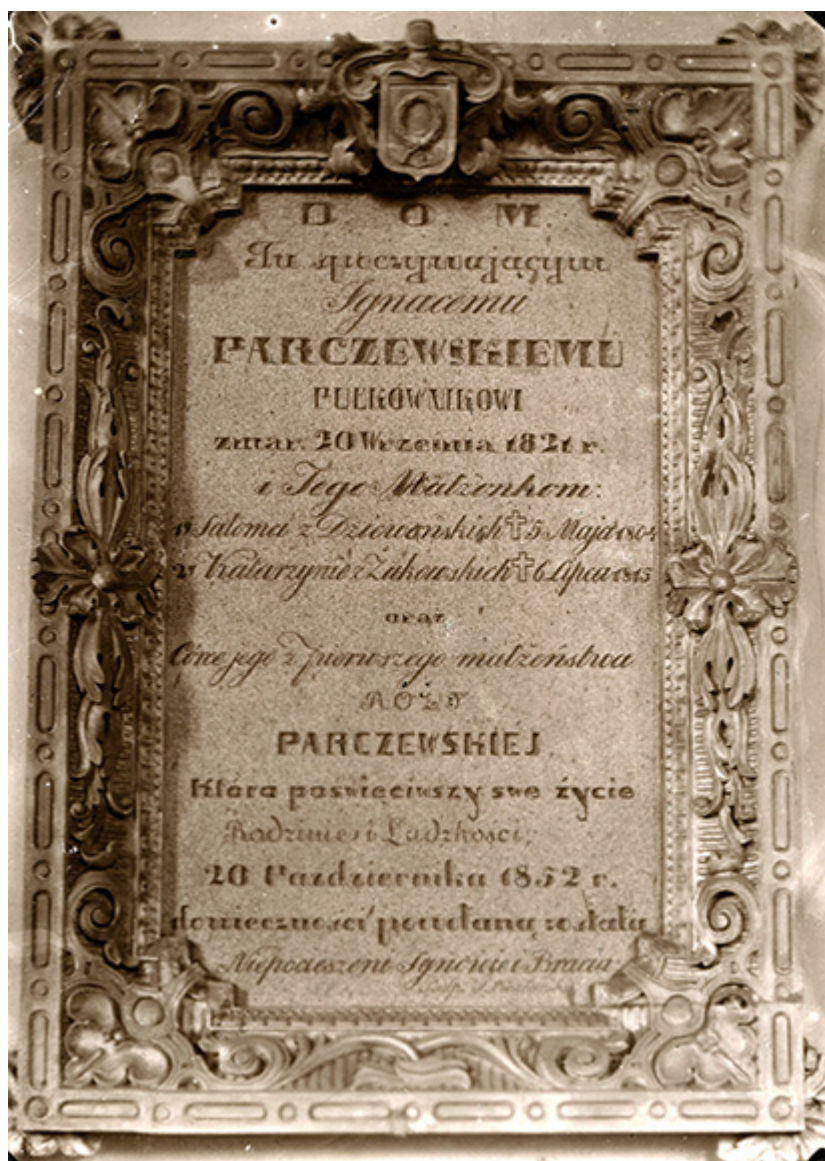 D O M
Tu spoczywającym
Ignacemu
PARCZEWSKIEMU
PUŁKOWNIKOWI
zmar. 20 Września 1821 r.
i Jego Małżonkom:
1º Salomei z Dziewońskich † 5 Maja 1804
2º Katarzynie z Żukowskich † 6 Lipca 1815
oraz
Córce jego z pierwszego małżeństwa
ROZY
PARCZEWSKIEJ
Która poświęciwszy swe życie
Rodzinie i Ludzkości,
20 Pazdziernika 1852 r.
do wieczności powołaną została
Niepocieszeni Synowie i Bracia